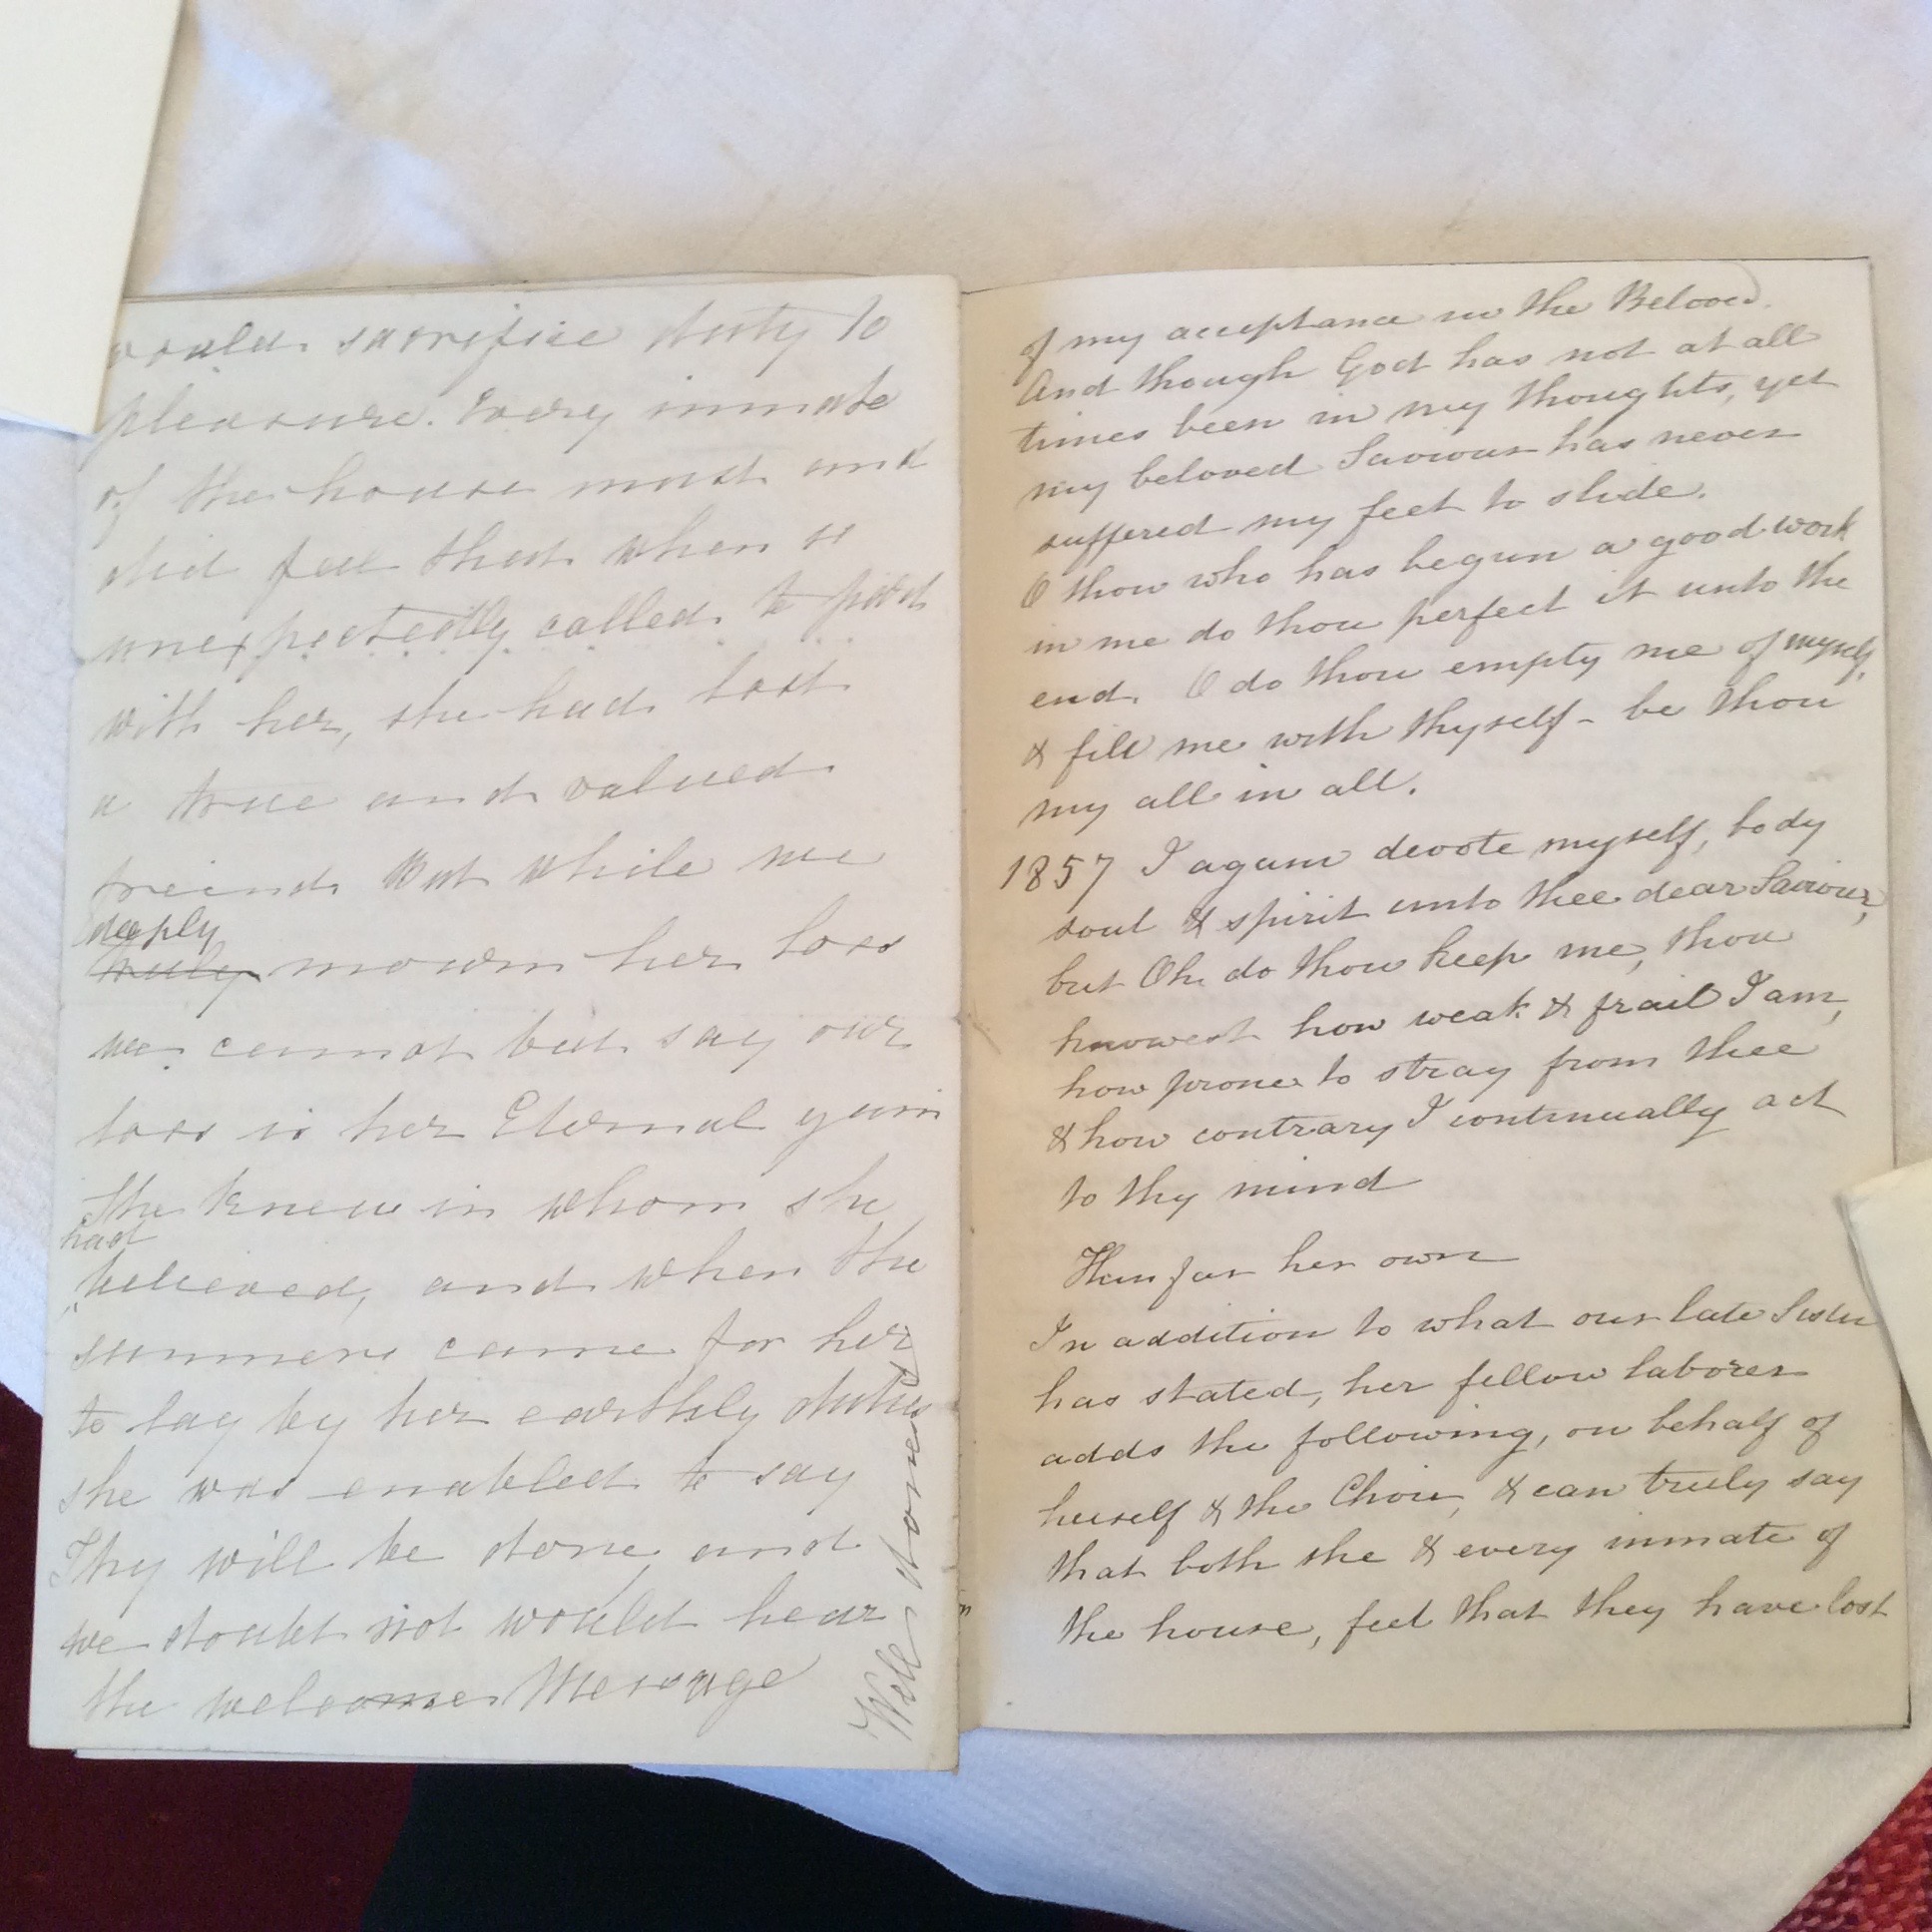 would sacrifice duty to
pleasure. Every inmate
of the house must and
did feel that when so
unexpectedly called to part
with her, she had lost
a true and valued
freind But while we
deeply
truly mourn her loss
we cannot but say our
loss is her Eternal gain
She knew in whom she
had
believed, and when the
summons came for her
to lay by her earthly duties
she was enabled to say
Thy will be done and
we doubt not would hear
the welcome Message
Well done
of my acceptance in the Beloved.
And though God has not at all
times been in my thoughts, yet
my beloved Saviour has never
suffered my feet to slide.
O thou who has begun a good work
in me do thou perfect it unto the
end. O do thou empty me of myself,
& fill me with thyself - be thou
my all in all.
1857 I again devote myself, body
soul & spirit unto thee dear Saviour,
but Oh do thou keep me, thou
knowest how weak & frail I am,
how prone to stray from thee
& how contrary I continually act
to thy mind
Thus far her own
In addition to what our late Sister
has stated, her fellow laborer
adds the following, on behalf of
herself & the Choir, & can truly say
that both she & every inmate of
the house, feel that they have lost